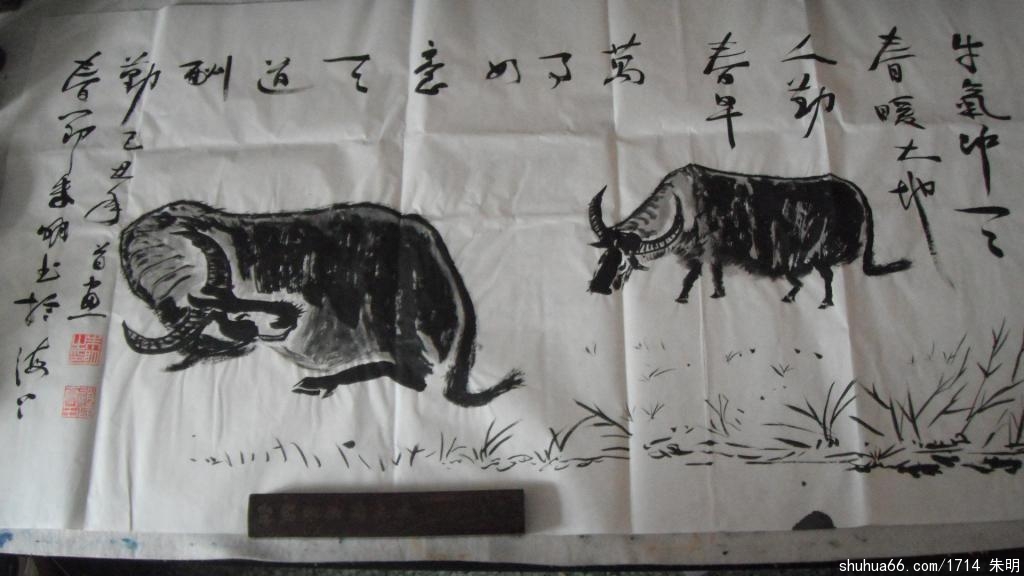 牛氣冲天
春暖大地
人勤
春早
萬
事
如
意
天
道
酬
勤
己丑年
首画
春節朱明书於海
shuhua66.com/1714 朱明